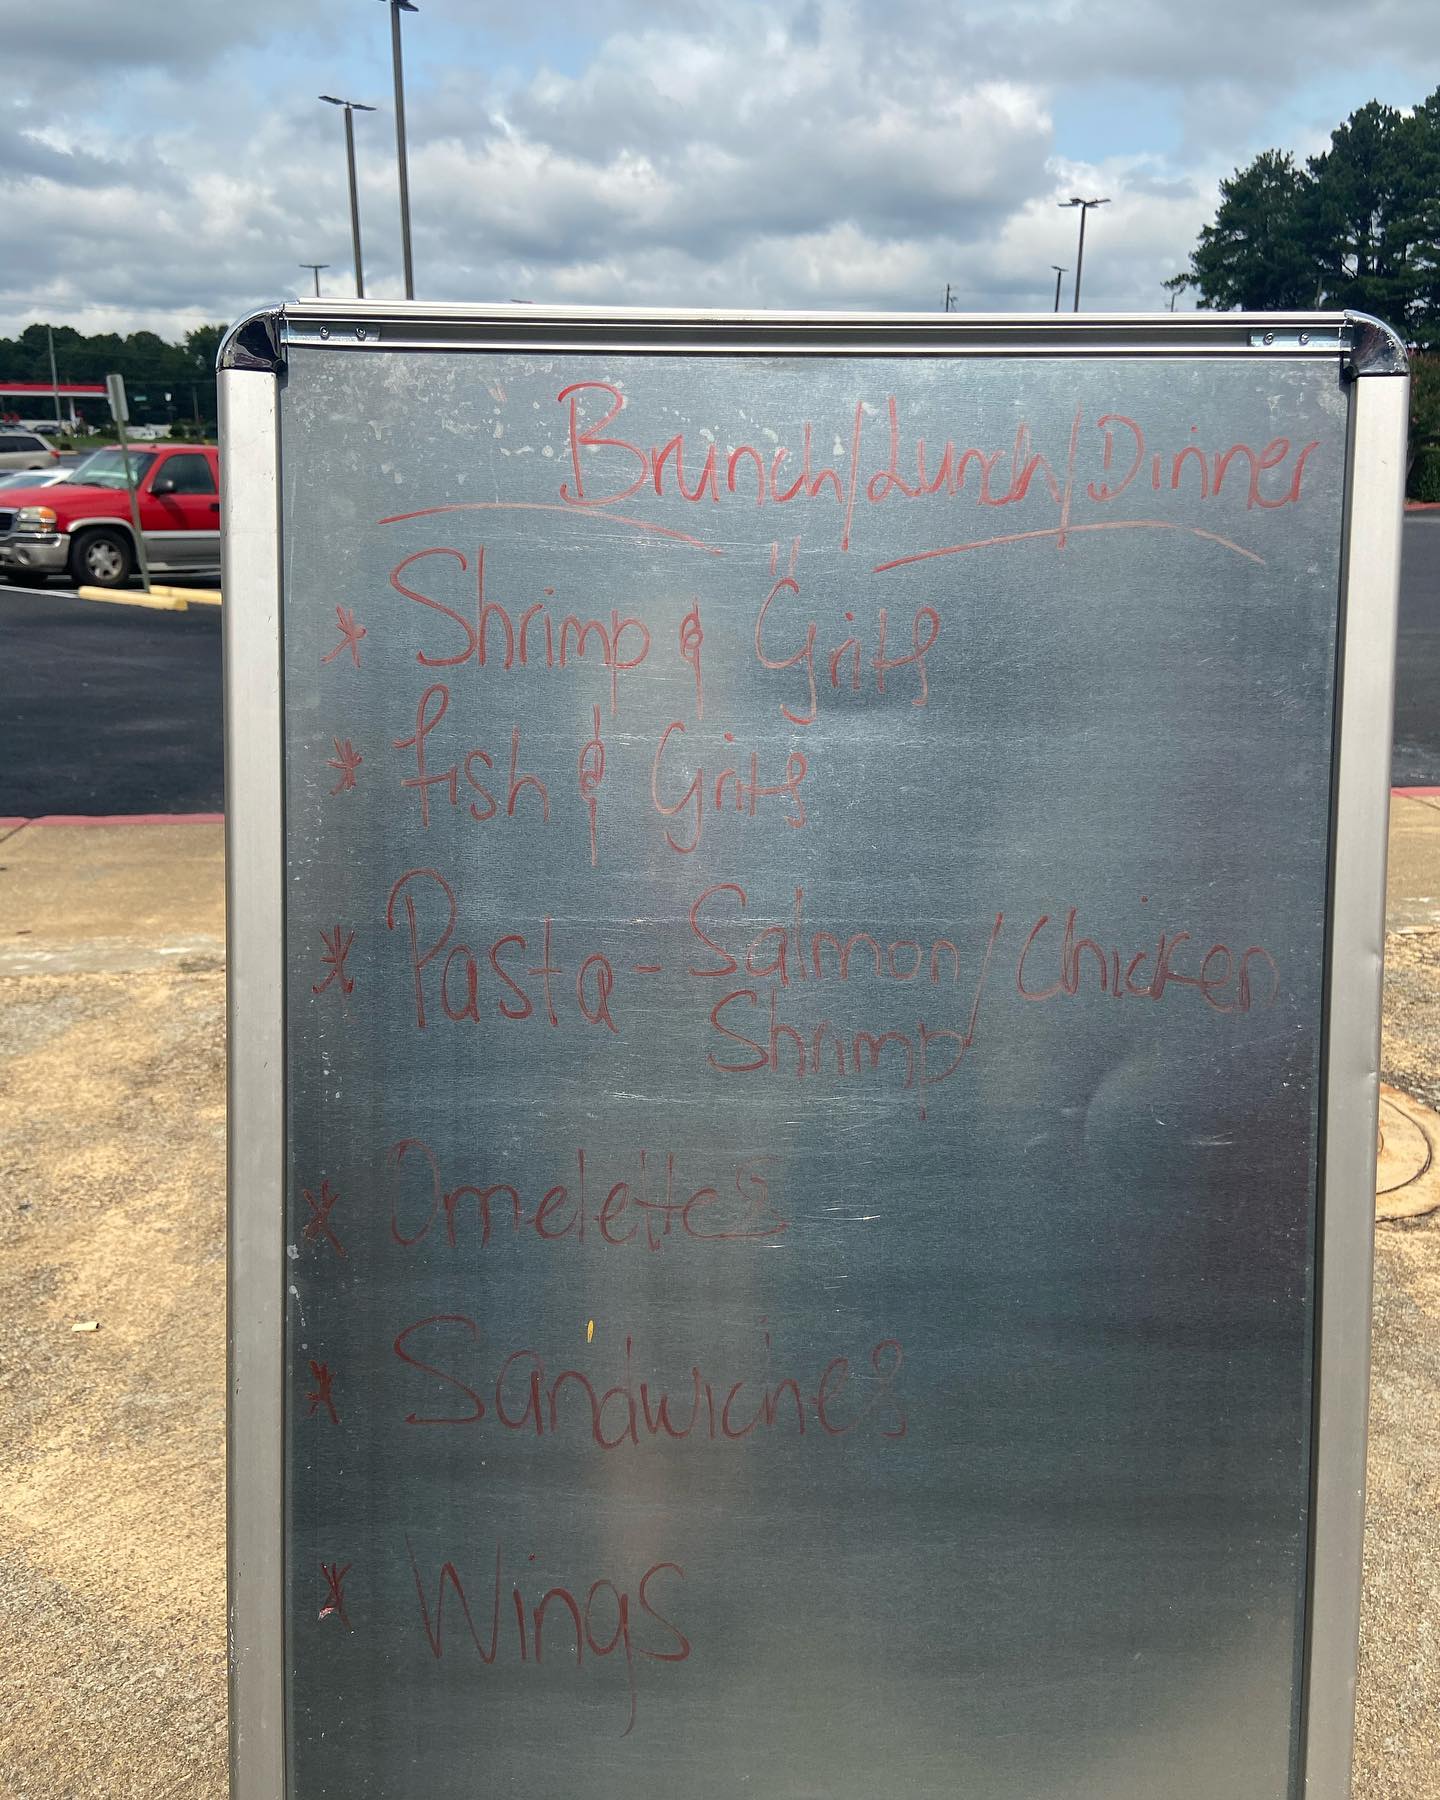 Brunch/Lunch/Dinner
* Shrimp & Grits
* Fish & Grits
* Pasta - Salmon/Chicken
Shrimp
* Omelettes
* Sandwiches
* Wings